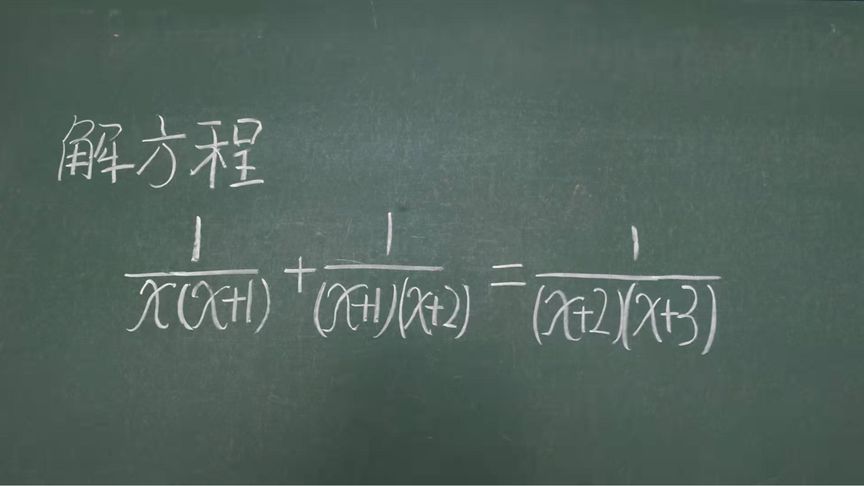 解方程
1/x(x+1) + 1/(x+1)(x+2) = 1/(x+2)(x+3)